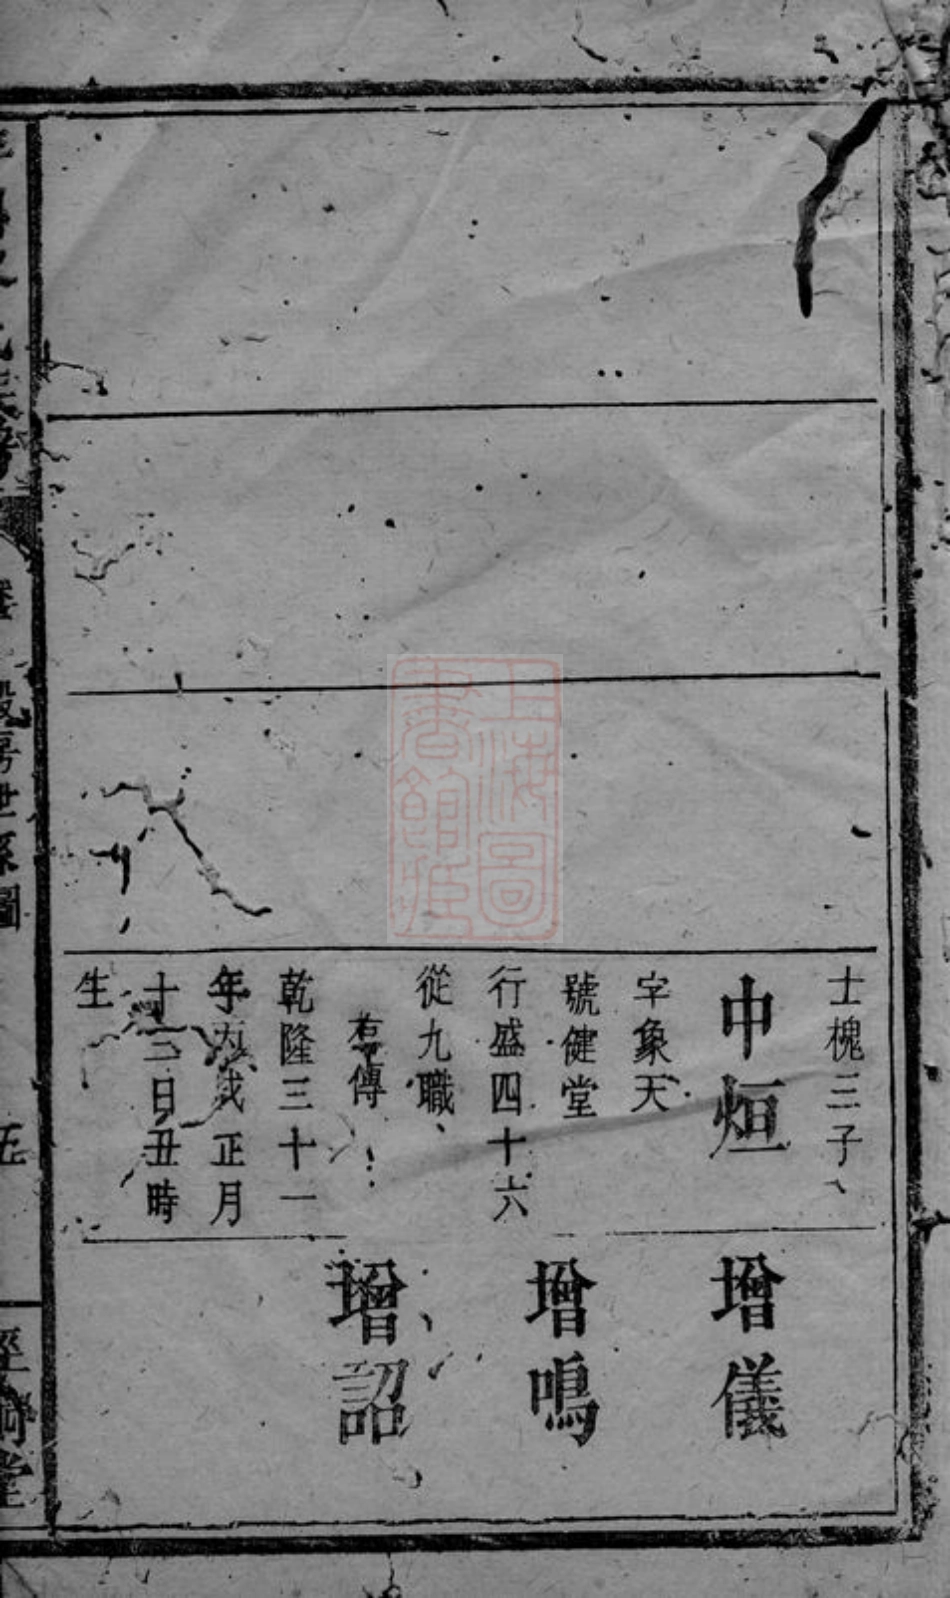 士槐三子
中烜
字象天
號健堂
行盛四十六
從九職
有傳
乾隆三十一
年丙戌正月
十二日丑時
生
增儀
增鳴
增詔
房世系圖
五
堂
上海圖
書館藏